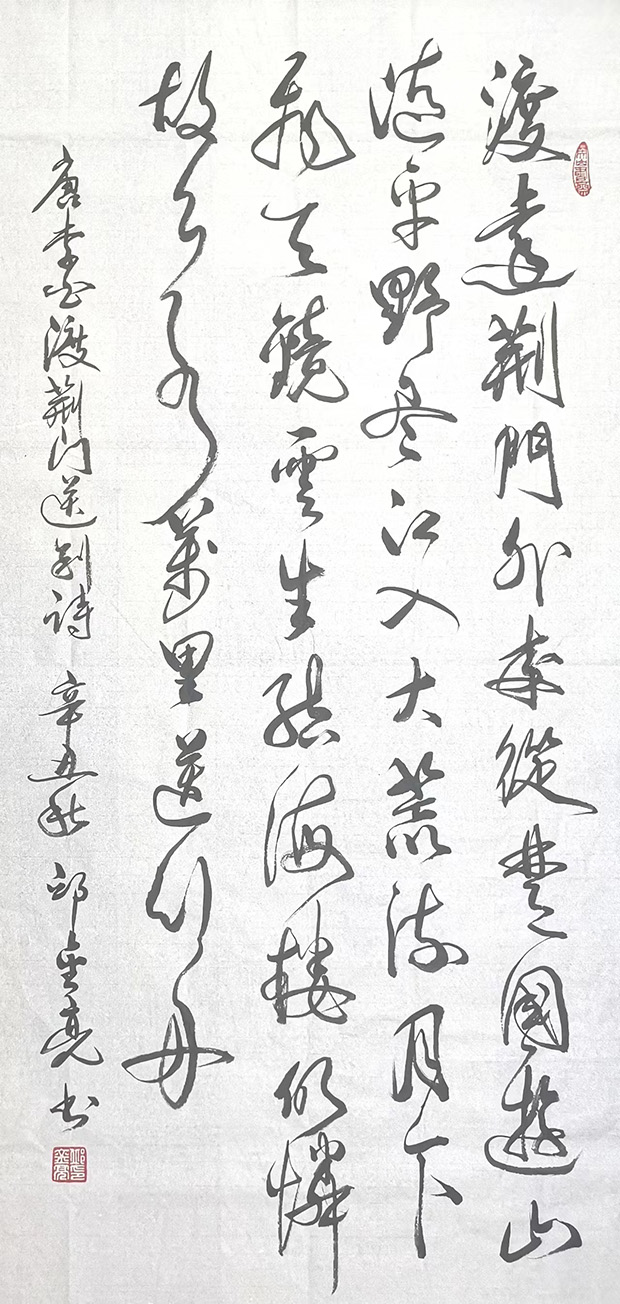 渡遠荆門外来從楚國遊山
随平野尽江入大荒流月下
飛天鏡雲生結海樓仍憐
故鄉水萬里送行舟
唐李白渡荆门送别詩 辛丑秋 邱金亮书